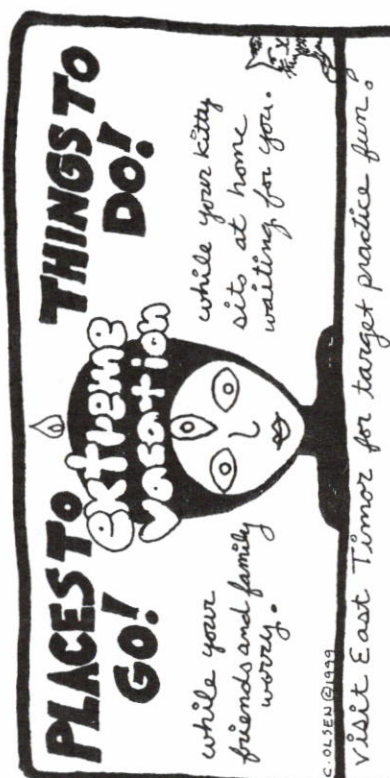 PLACES TO
GO!
THINGS TO
DO!
extreme
vacation
while your
friends and family
worry.
while your kitty
sits at home
waiting for you.
C. OLSEN©1999
Visit East Timor for target practice fun.